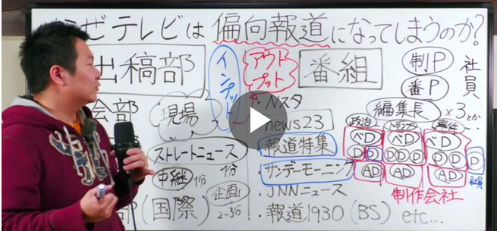 なぜテレビは偏向報道になってしまうのか?
出稿部
インプット
アウトプット
番組
制P
番P
社員
編集長×3とか
会部
現場
・Nスタ
・news23
報道特集
サンデーモーニング
・JNNニュース
・報道1930(BS) etc...
ストレートニュース
1分
中継 1分
企画
2-3分
部(国際)
政治
PD
PD
PD
D
D
DDD
D
D
AD
AD
AD
社員
制作会社